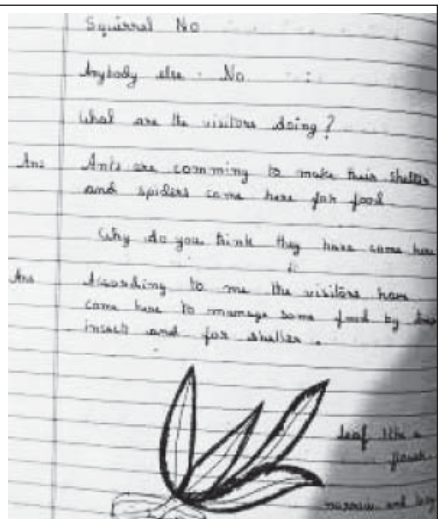 Squirrel No
Anybody else. No
What are the visitors doing?
Ans Ants are comming to make their shelter
and spiders come here for food
Why do you think they have come here
Ans According to me the visitors have
come here to manage some food by
insect and for shelter.
leaf like a
narrow and